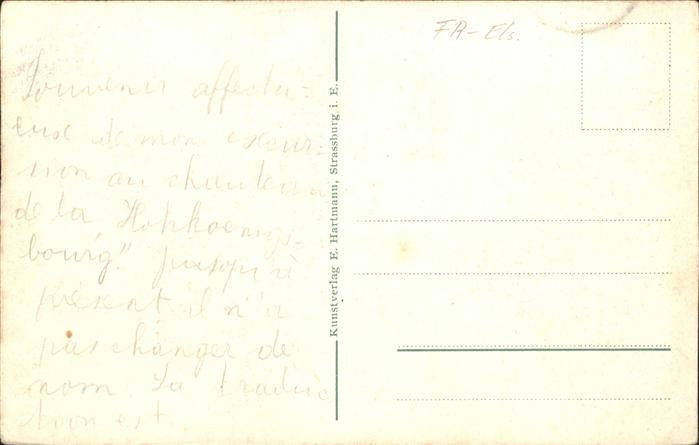 FR-Els.
Souvenir affectu=
eux de mon excur=
sion au chateau
de la Hohkoenigs=
bourg." jusqu'à
présent il n'a
pas changer de
nom. La traduc
tion est
Kunstverlag E. Hartmann, Strassburg i. E.